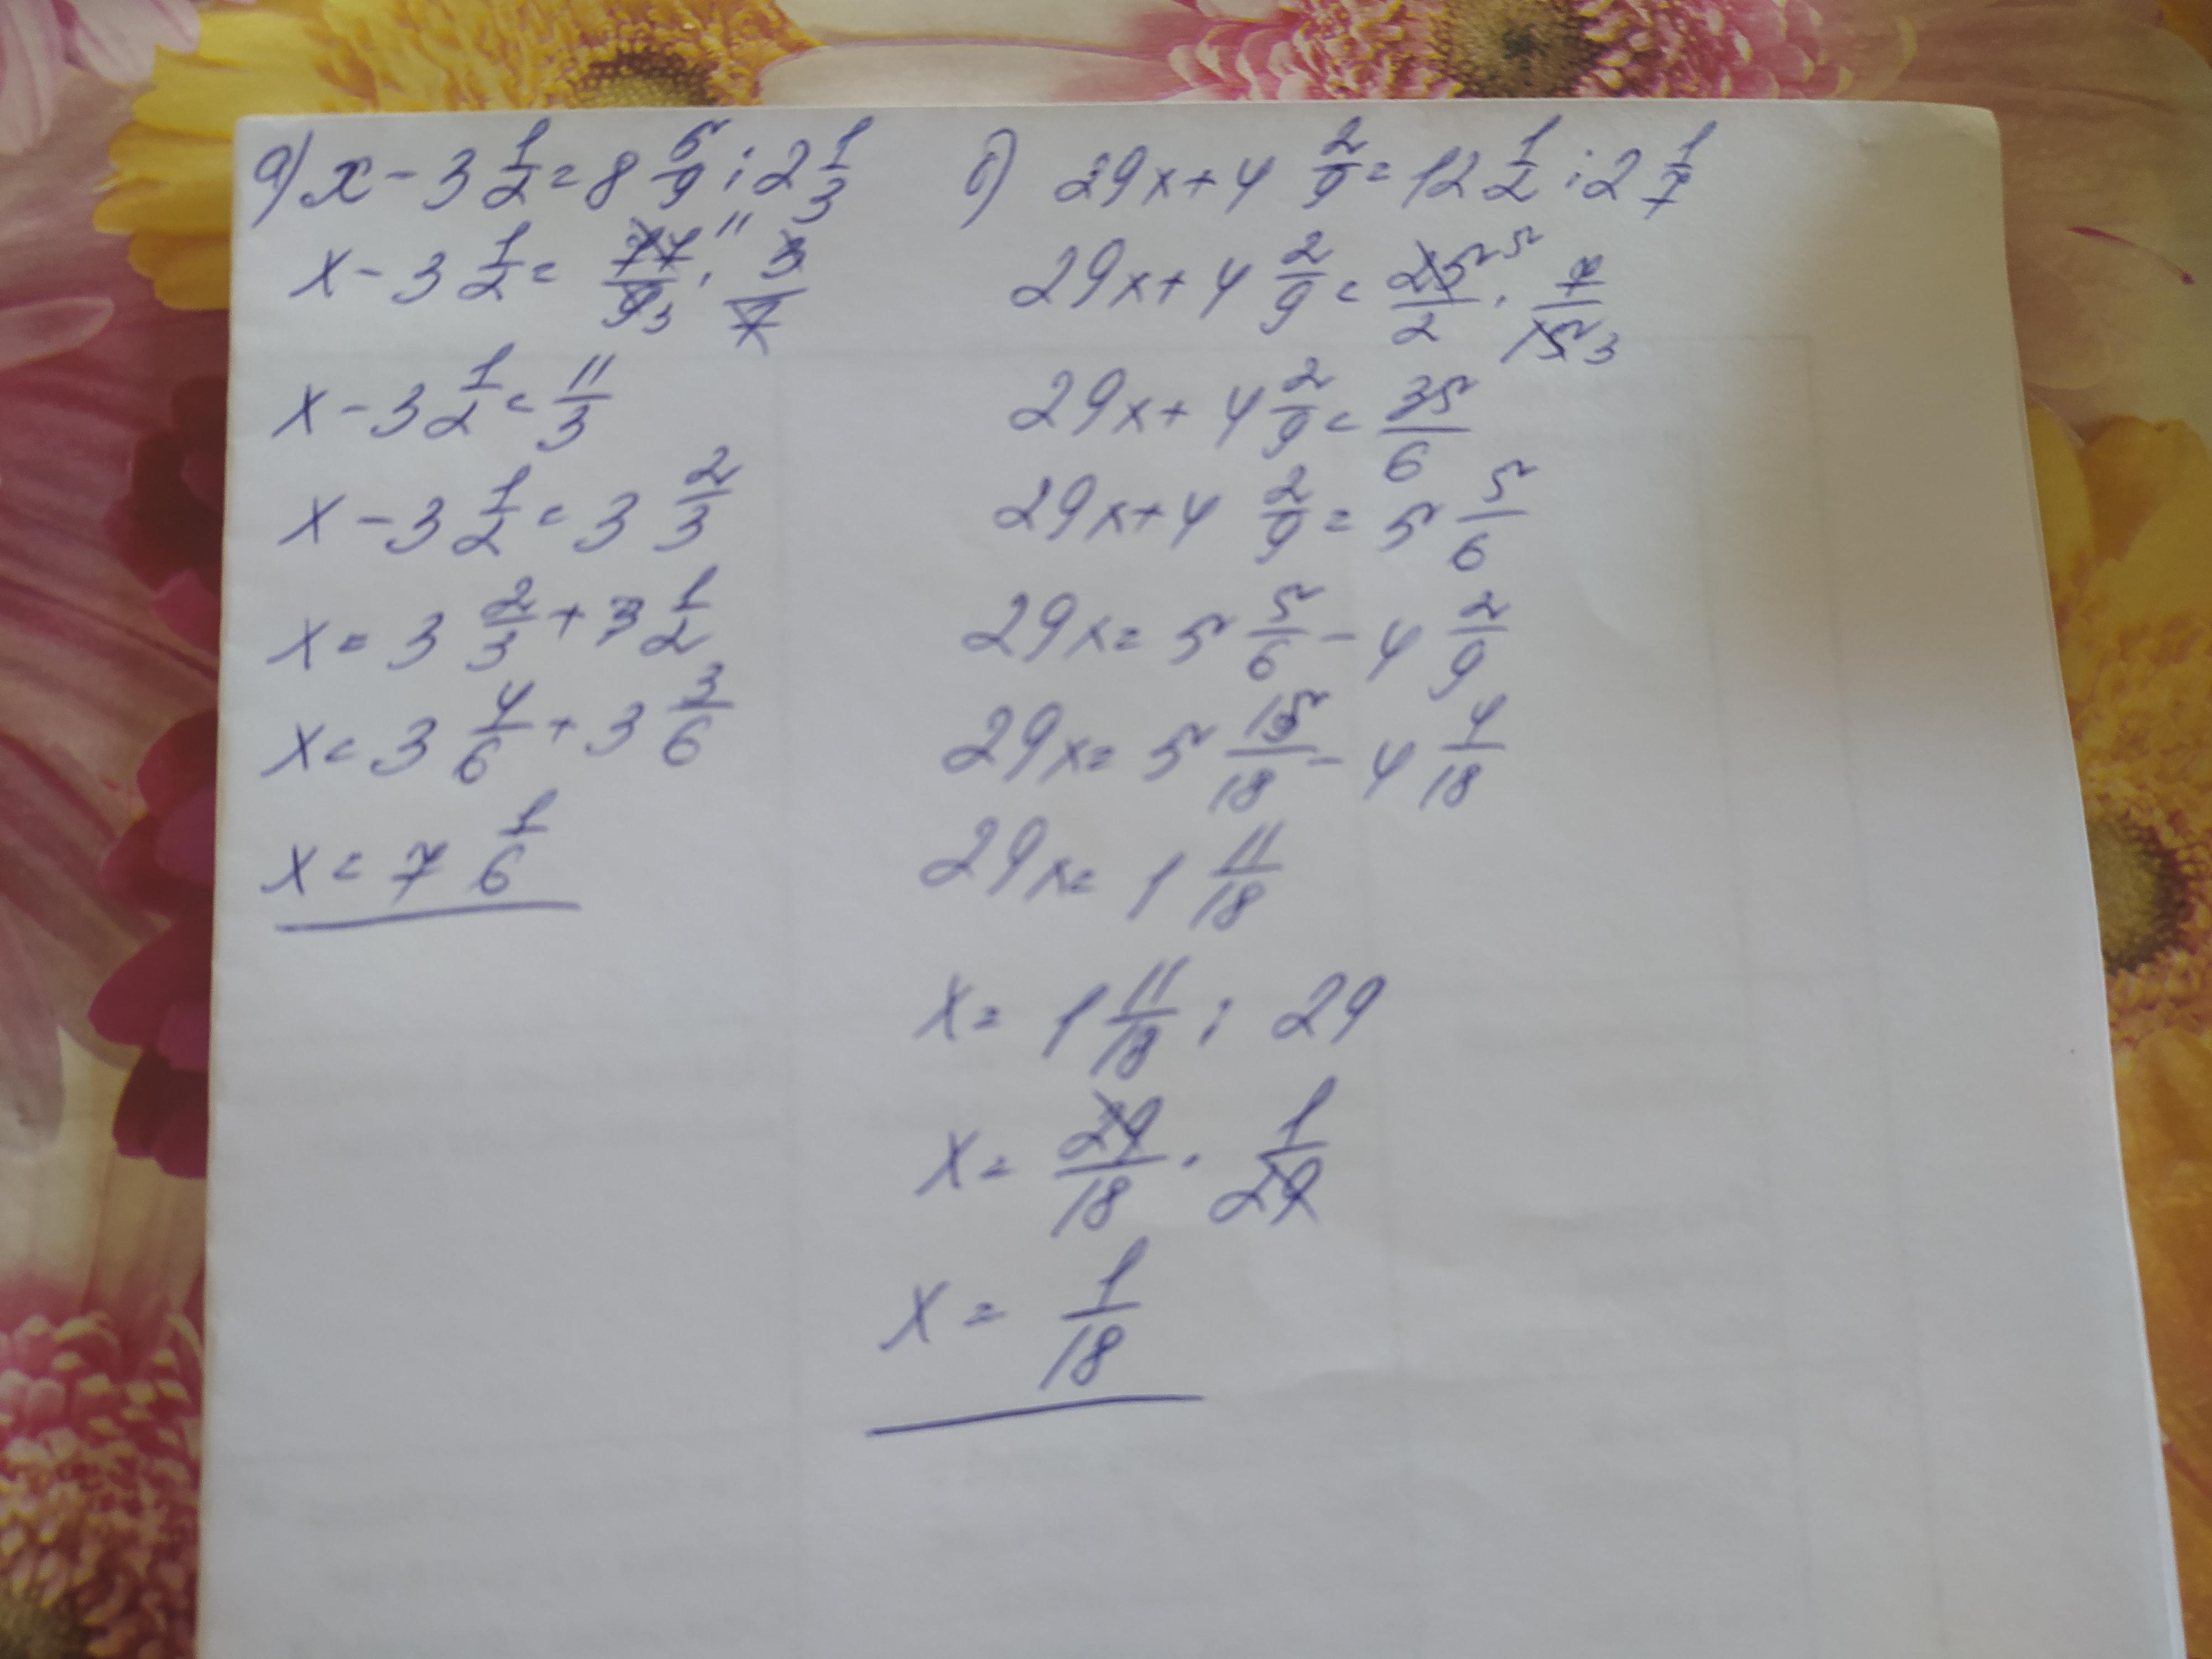 а) x - 3 1/2 = 8 5/9 : 2 1/3
x - 3 1/2 = 77/9 11 3 · 3/7
x - 3 1/2 = 11/3
x - 3 1/2 = 3 2/3
x = 3 2/3 + 3 1/2
x = 3 4/6 + 3 3/6
x = 7 1/6
б) 29x + 4 2/9 = 12 1/2 : 2 1/7
29x + 4 2/9 = 25/2 5 · 7/15 3
29x + 4 2/9 = 35/6
29x + 4 2/9 = 5 5/6
29x = 5 5/6 - 4 2/9
29x = 5 15/18 - 4 4/18
29x = 1 11/18
x = 1 11/18 : 29
x = 29/18 · 1/29
x = 1/18